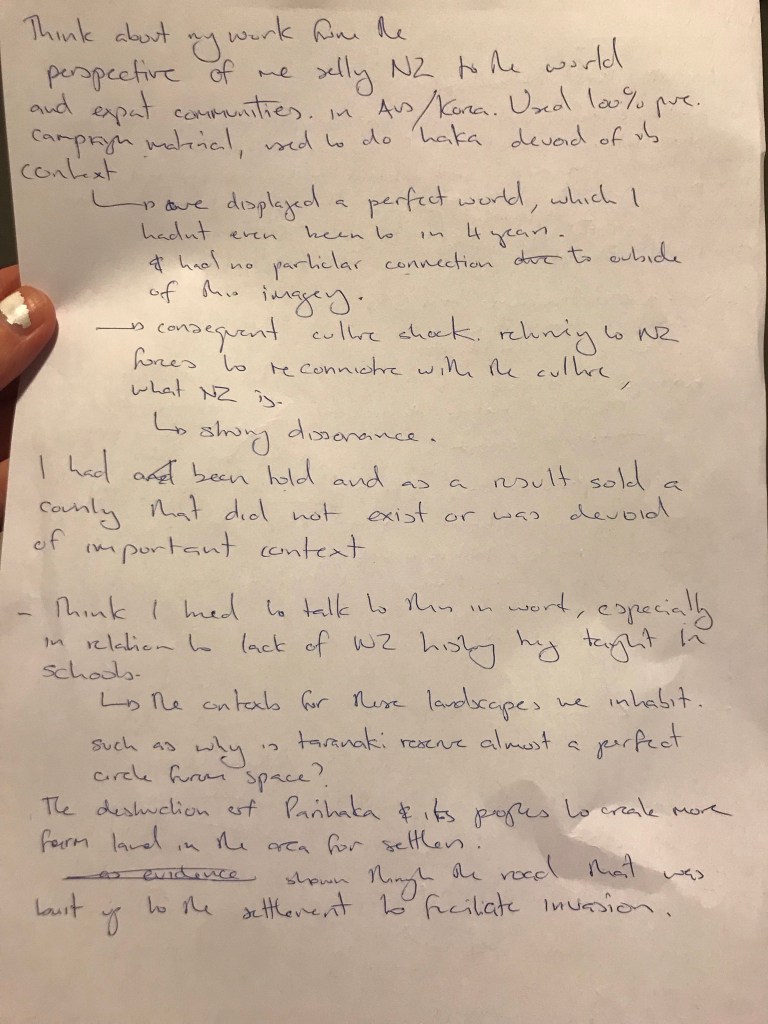 Think about my work from the
perspective of me selly NZ to the world
and expat communities. in Aus/Korea. Used 100% pure.
campaign material, used to do haka devoid of its
context
↳ we displayed a perfect world, which I
hadnt even been to in 4 years.
& had no particlar connection to outside
of this imagery.
→ consequent culture shock. returning to NZ
forces to reconnicte with the culture,
what NZ is.
↳ strong dissonance.
I had been told and as a result sold a
county that did not exist or was devoid
of important context
- Think I need to talk to this in work, especially
in relation to lack of NZ history being taught in
schools.
↳ The contexts for these landscapes we inhabit.
such as why is taranaki reserve almost a perfect
circle from space?
The destruction of Parihaka & its peoples to create more
farm land in the area for settlers.
as evidence shown through the road that was
built up to the settlement to faciliate invasion.